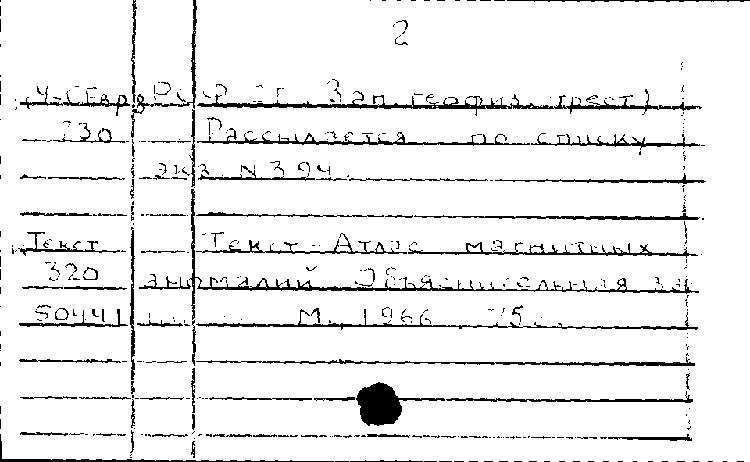 2
Зап. геофиз. трест)
Рассылается по списку
экз N 394.
Текст Текст - Атлас магнитных
320 аномалий Объяснительная за
50441 М., 1966 75с.